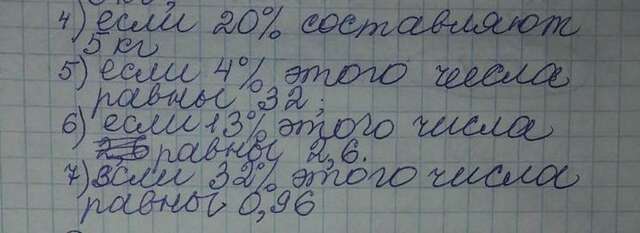 4) если 20% составляют
5 кг
5) если 4% этого числа
равны 32;
6) если 13% этого числа
равны 2,6.
7) если 32% этого числа
равны 0,96